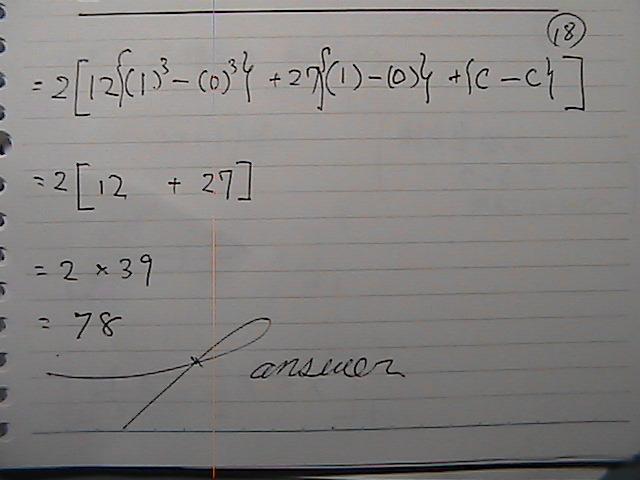 18
= 2 [12{(1)³ - (0)³} + 27{(1) - (0)} + {c - c}]
= 2 [12 + 27]
= 2 × 39
= 78
answer